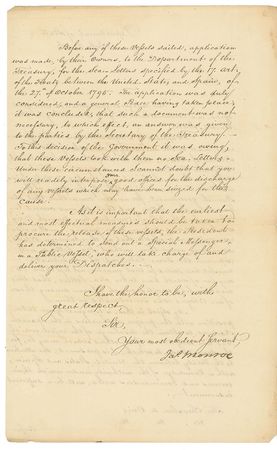 Before any of these Vessels sailed, application
was made, by their Owners, to the Department of the
Treasury, for the Sea-Letters specified by the 17. art.
of the Treaty between the United States and Spain, of
the 27th of October 1795. The application was duly
considered, and a general Peace having taken place,
it was concluded, that such a document was not
necessary, to which effect, an answer was given
to the parties by the Secretary of the Treasury.
To this decision of the Government it was owing,
that these Vessels took with them no Sea-Letters.
Under these circumstances I cannot doubt that you
will readily interpose your good offices for the discharge
of any vessels which may have been seized for this
cause.
As it is important that the earliest
and most effectual measures should be taken to
procure the release of these vessels, the President
has determined to send out a Special Messenger,
in a Public Vessel, who will take charge of and
deliver your Dispatches.
I have the honor to be, with
great respect,
Sir,
Your most obedient Servant,
Jas Monroe